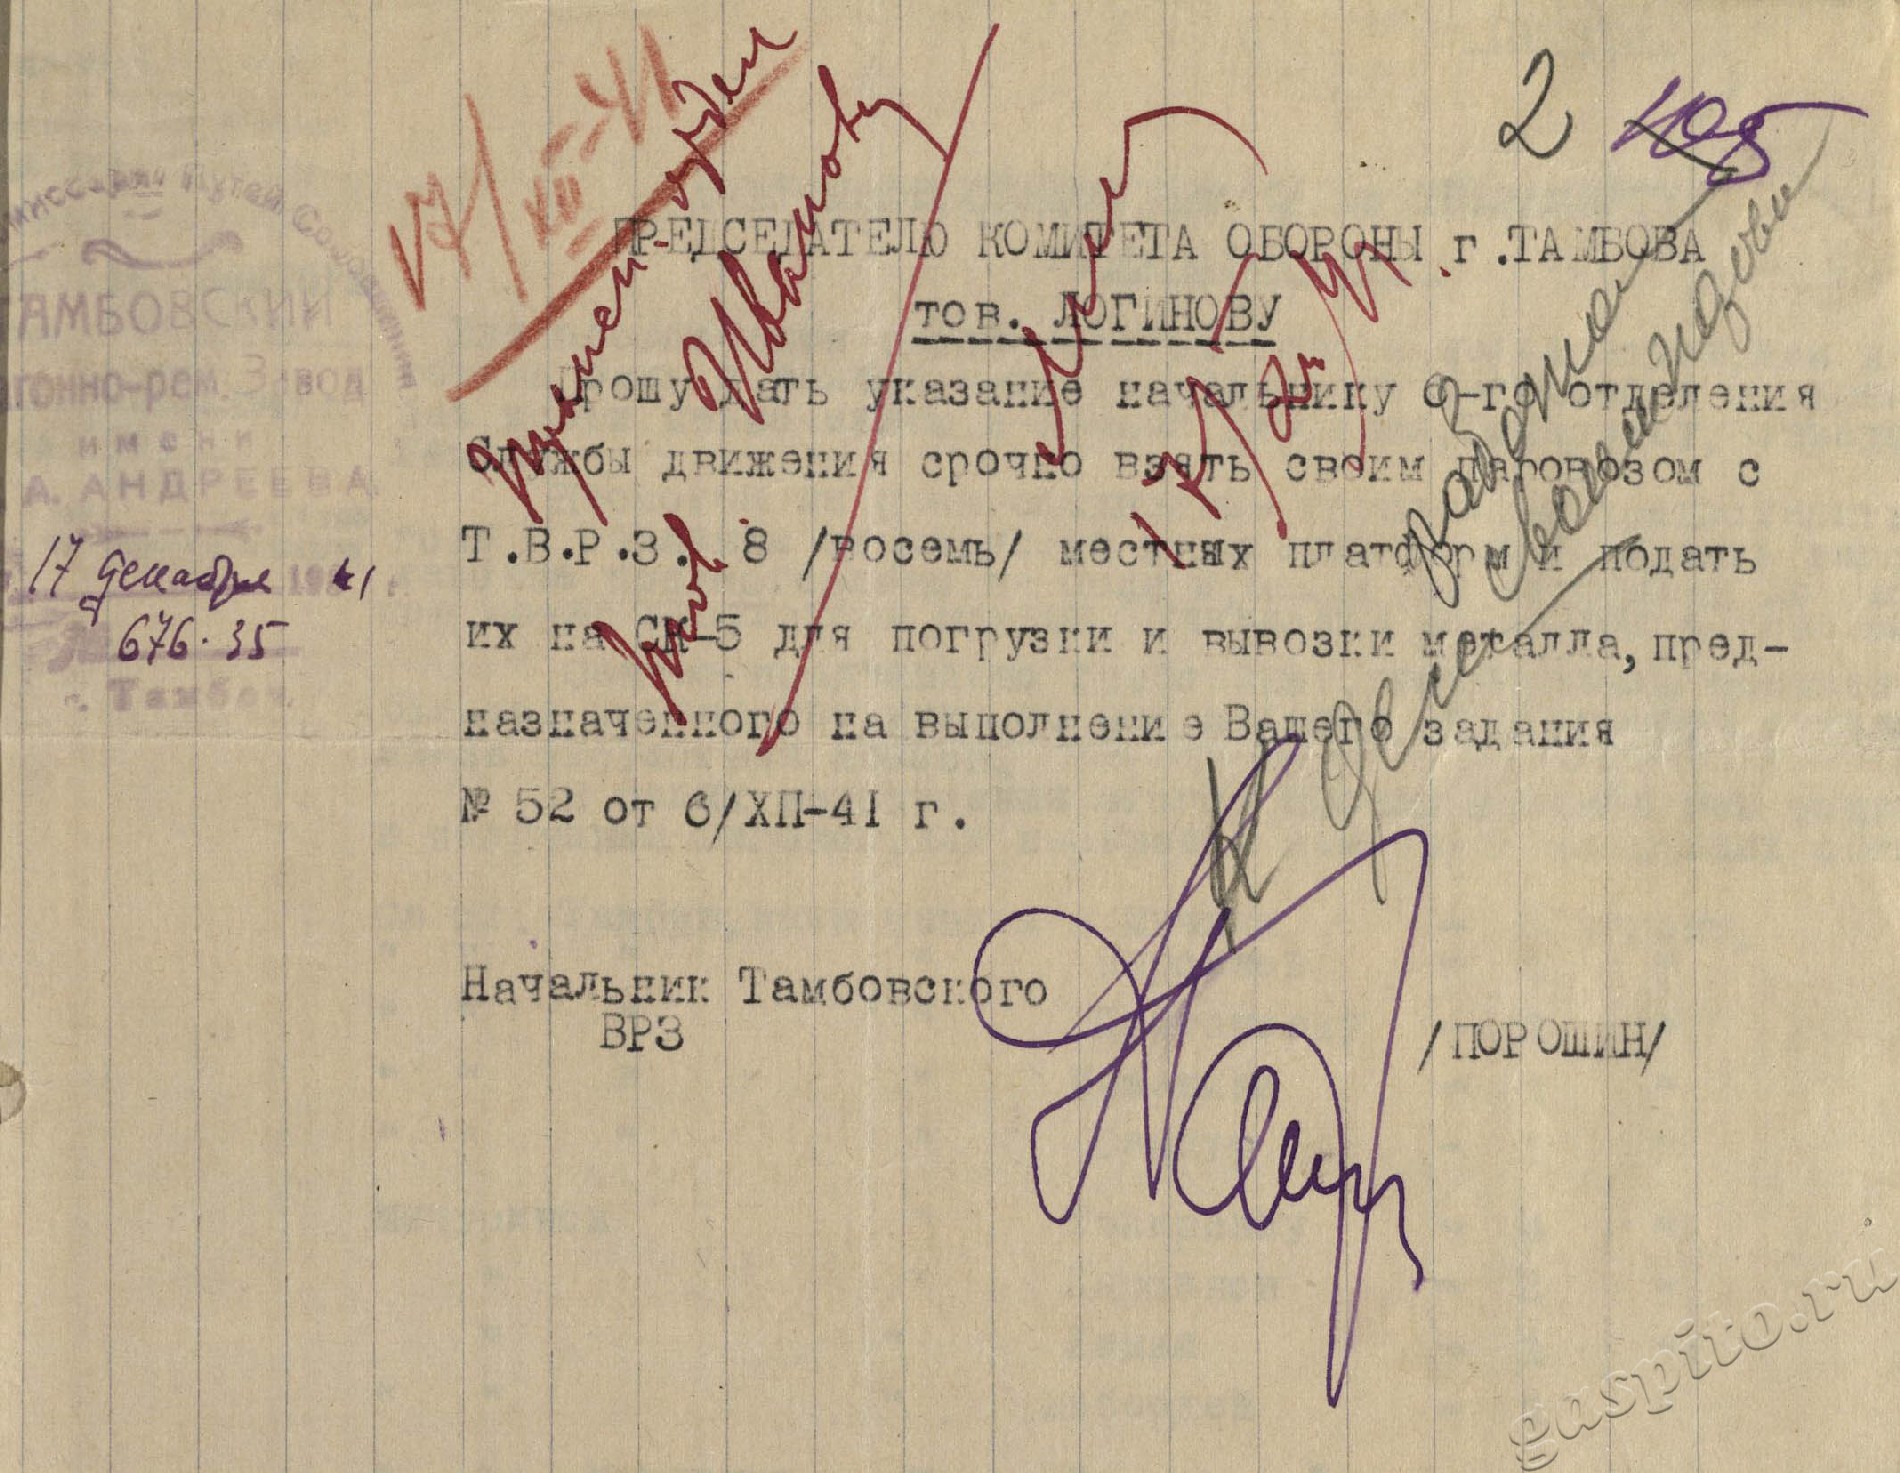 2
17/XII-41
Комиссариат Путей Сообщения
ТАМБОВСКИЙ
Вагонно-рем. Завод
имени
А. АНДРЕЕВА
17 декабря 1941 г.
676·35
г. Тамбов.
ПРЕДСЕДАТЕЛЮ КОМИТЕТА ОБОРОНЫ г.ТАМБОВА
тов. ЛОГИНОВУ
Прошу дать указание начальнику 6-го отделения
Службы движения срочно взять своим паровозом с
Т.В.Р.З. 8 /восемь/ местных платформ и подать
их на СК-5 для погрузки и вывозки металла, пред-
назначенного на выполнение Вашего задания
№ 52 от 6/ХП-41 г.
Начальник Тамбовского
ВРЗ
/ПОРОШИН/
тов. Иванову
17/XII 41
К делу
gaspito.ru